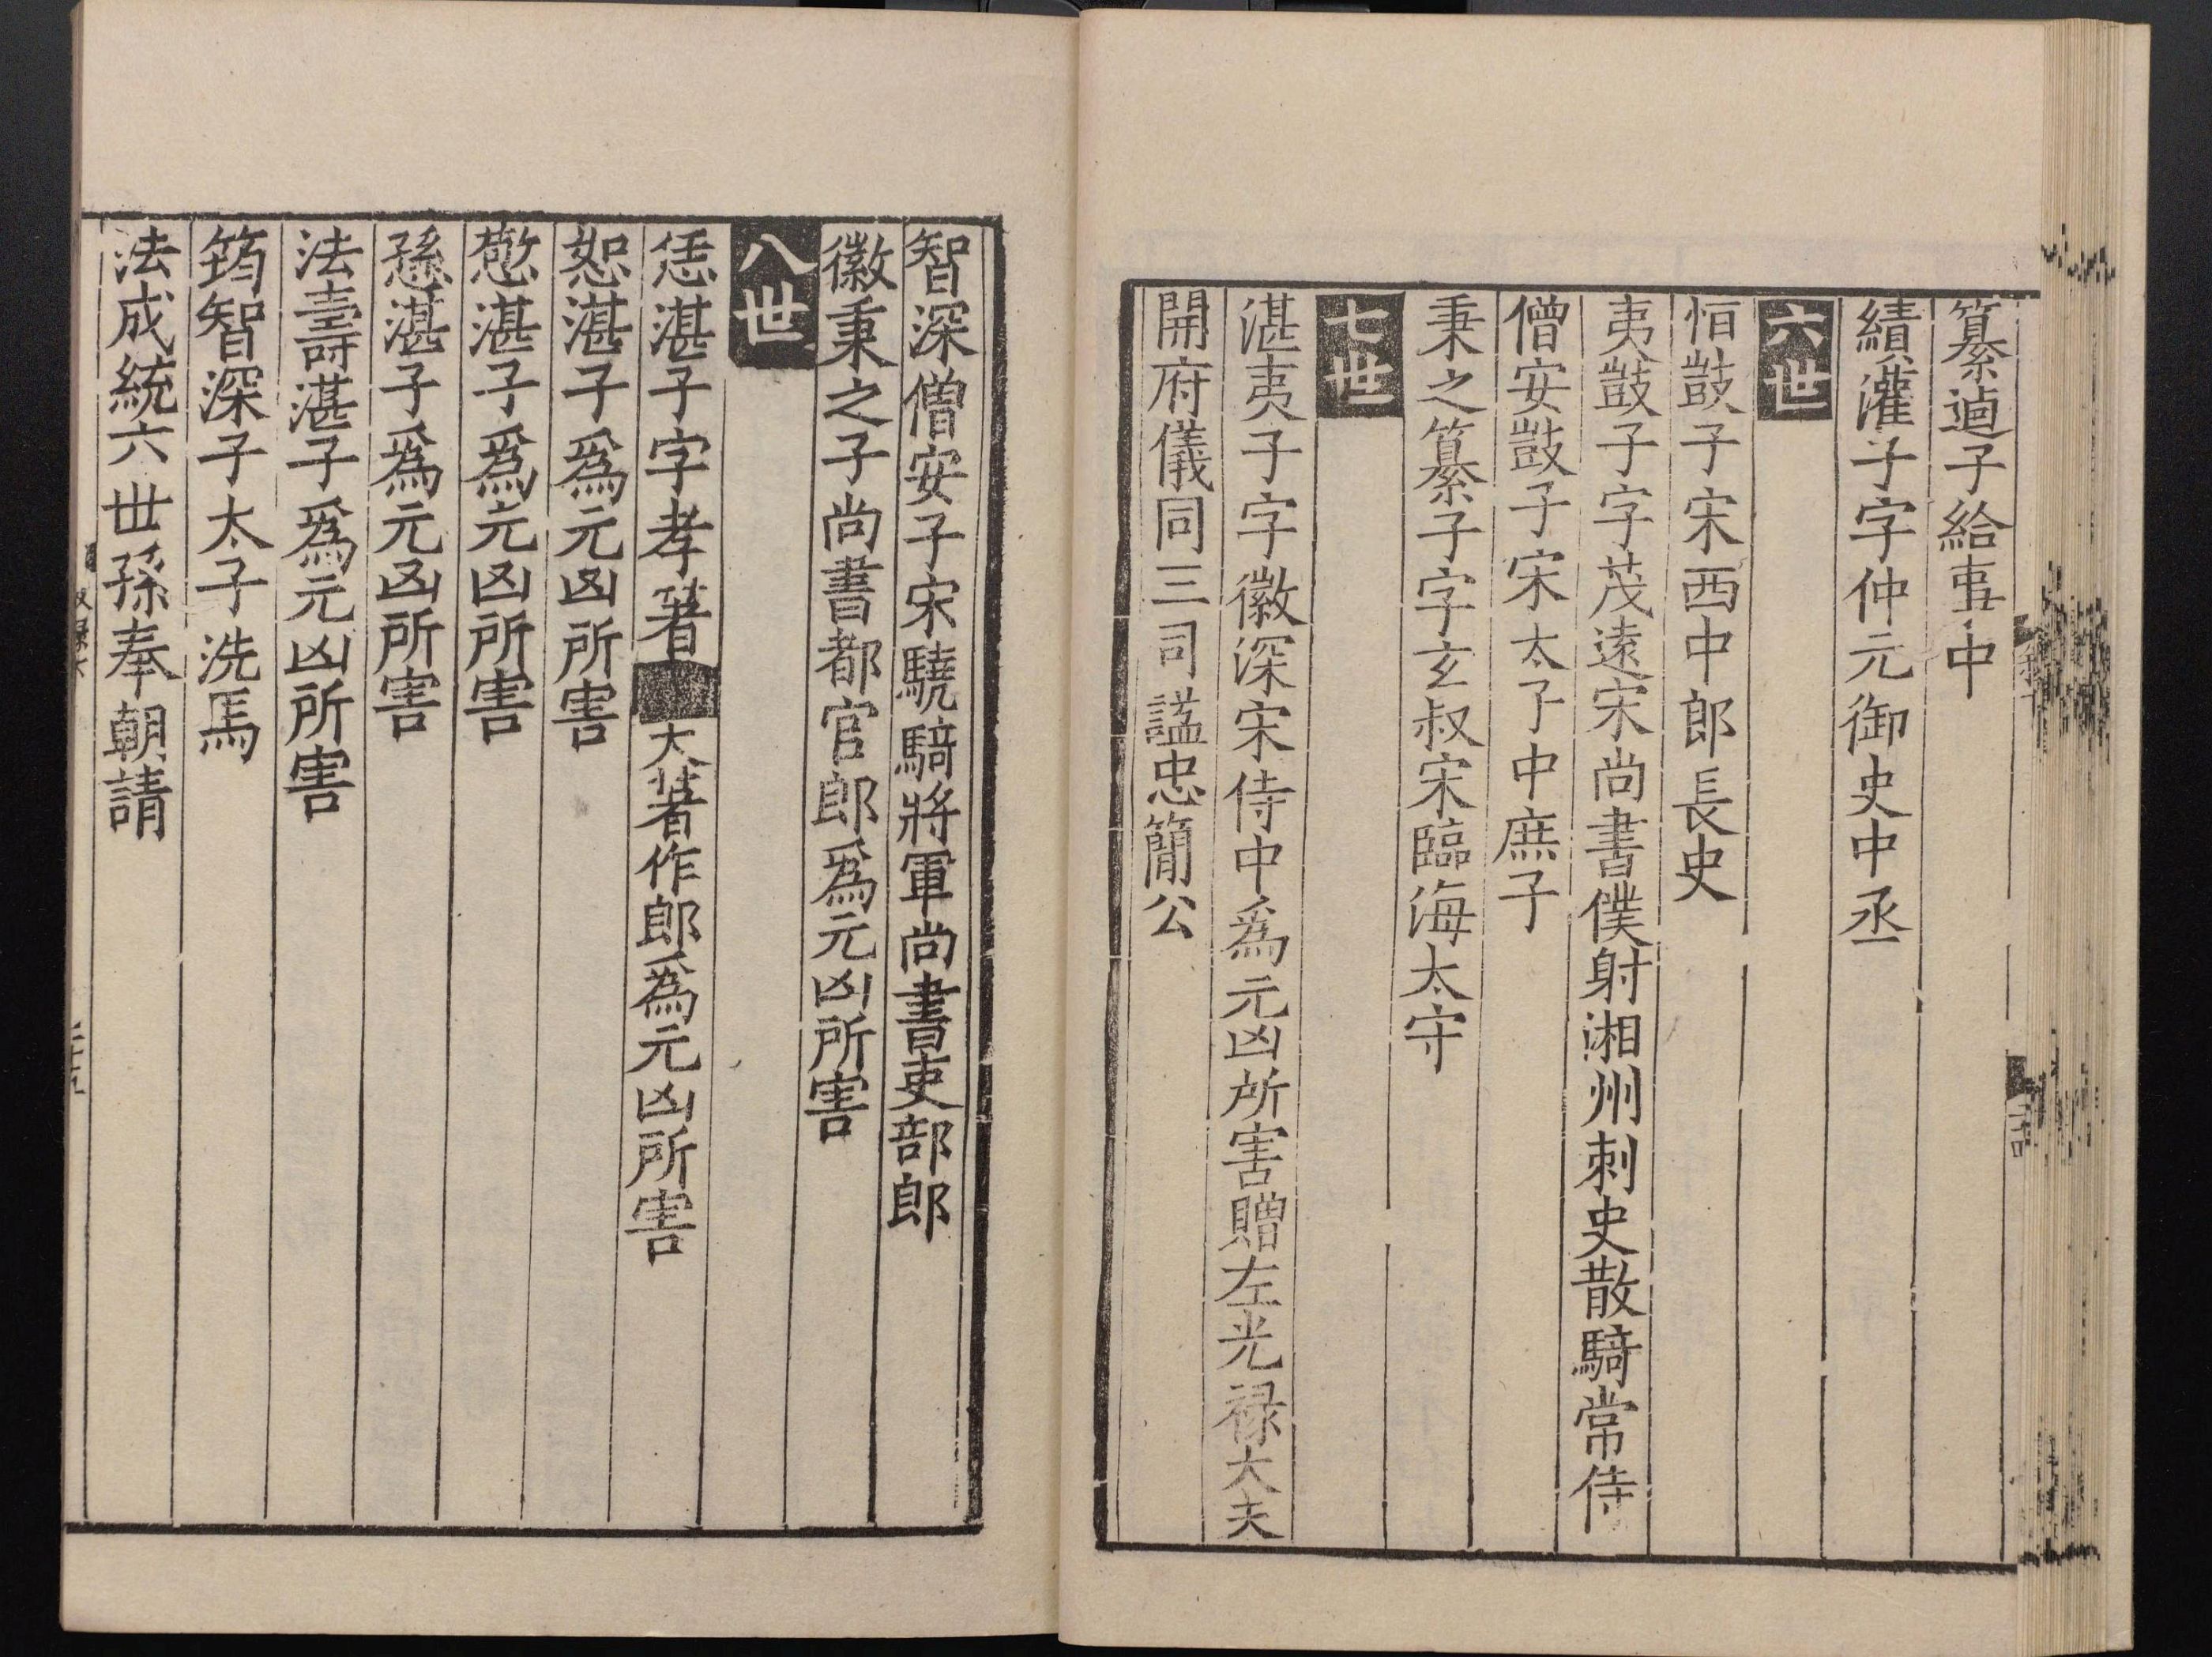 纂逌子給事中
績灌子字仲元御史中丞
六世
恒敳子宋西中郎長史
夷敳子字茂遠宋尚書僕射湘州刺史散騎常侍
僧安敳子宋太子中庶子
秉之纂子字玄叔宋臨海太守
七世
湛夷子字徽深宋侍中爲元凶所害贈左光禄大夫
開府儀同三司謚忠簡公
智深僧安子宋驍騎將軍尚書吏部郎
徽秉之子尚書都官郎爲元凶所害
八世
恁湛子字孝著大著作郎爲元凶所害
恕湛子爲元凶所害
憼湛子爲元凶所害
愻湛子爲元凶所害
法壽湛子爲元凶所害
筠智深子太子洗馬
法成統六世孫奉朝請